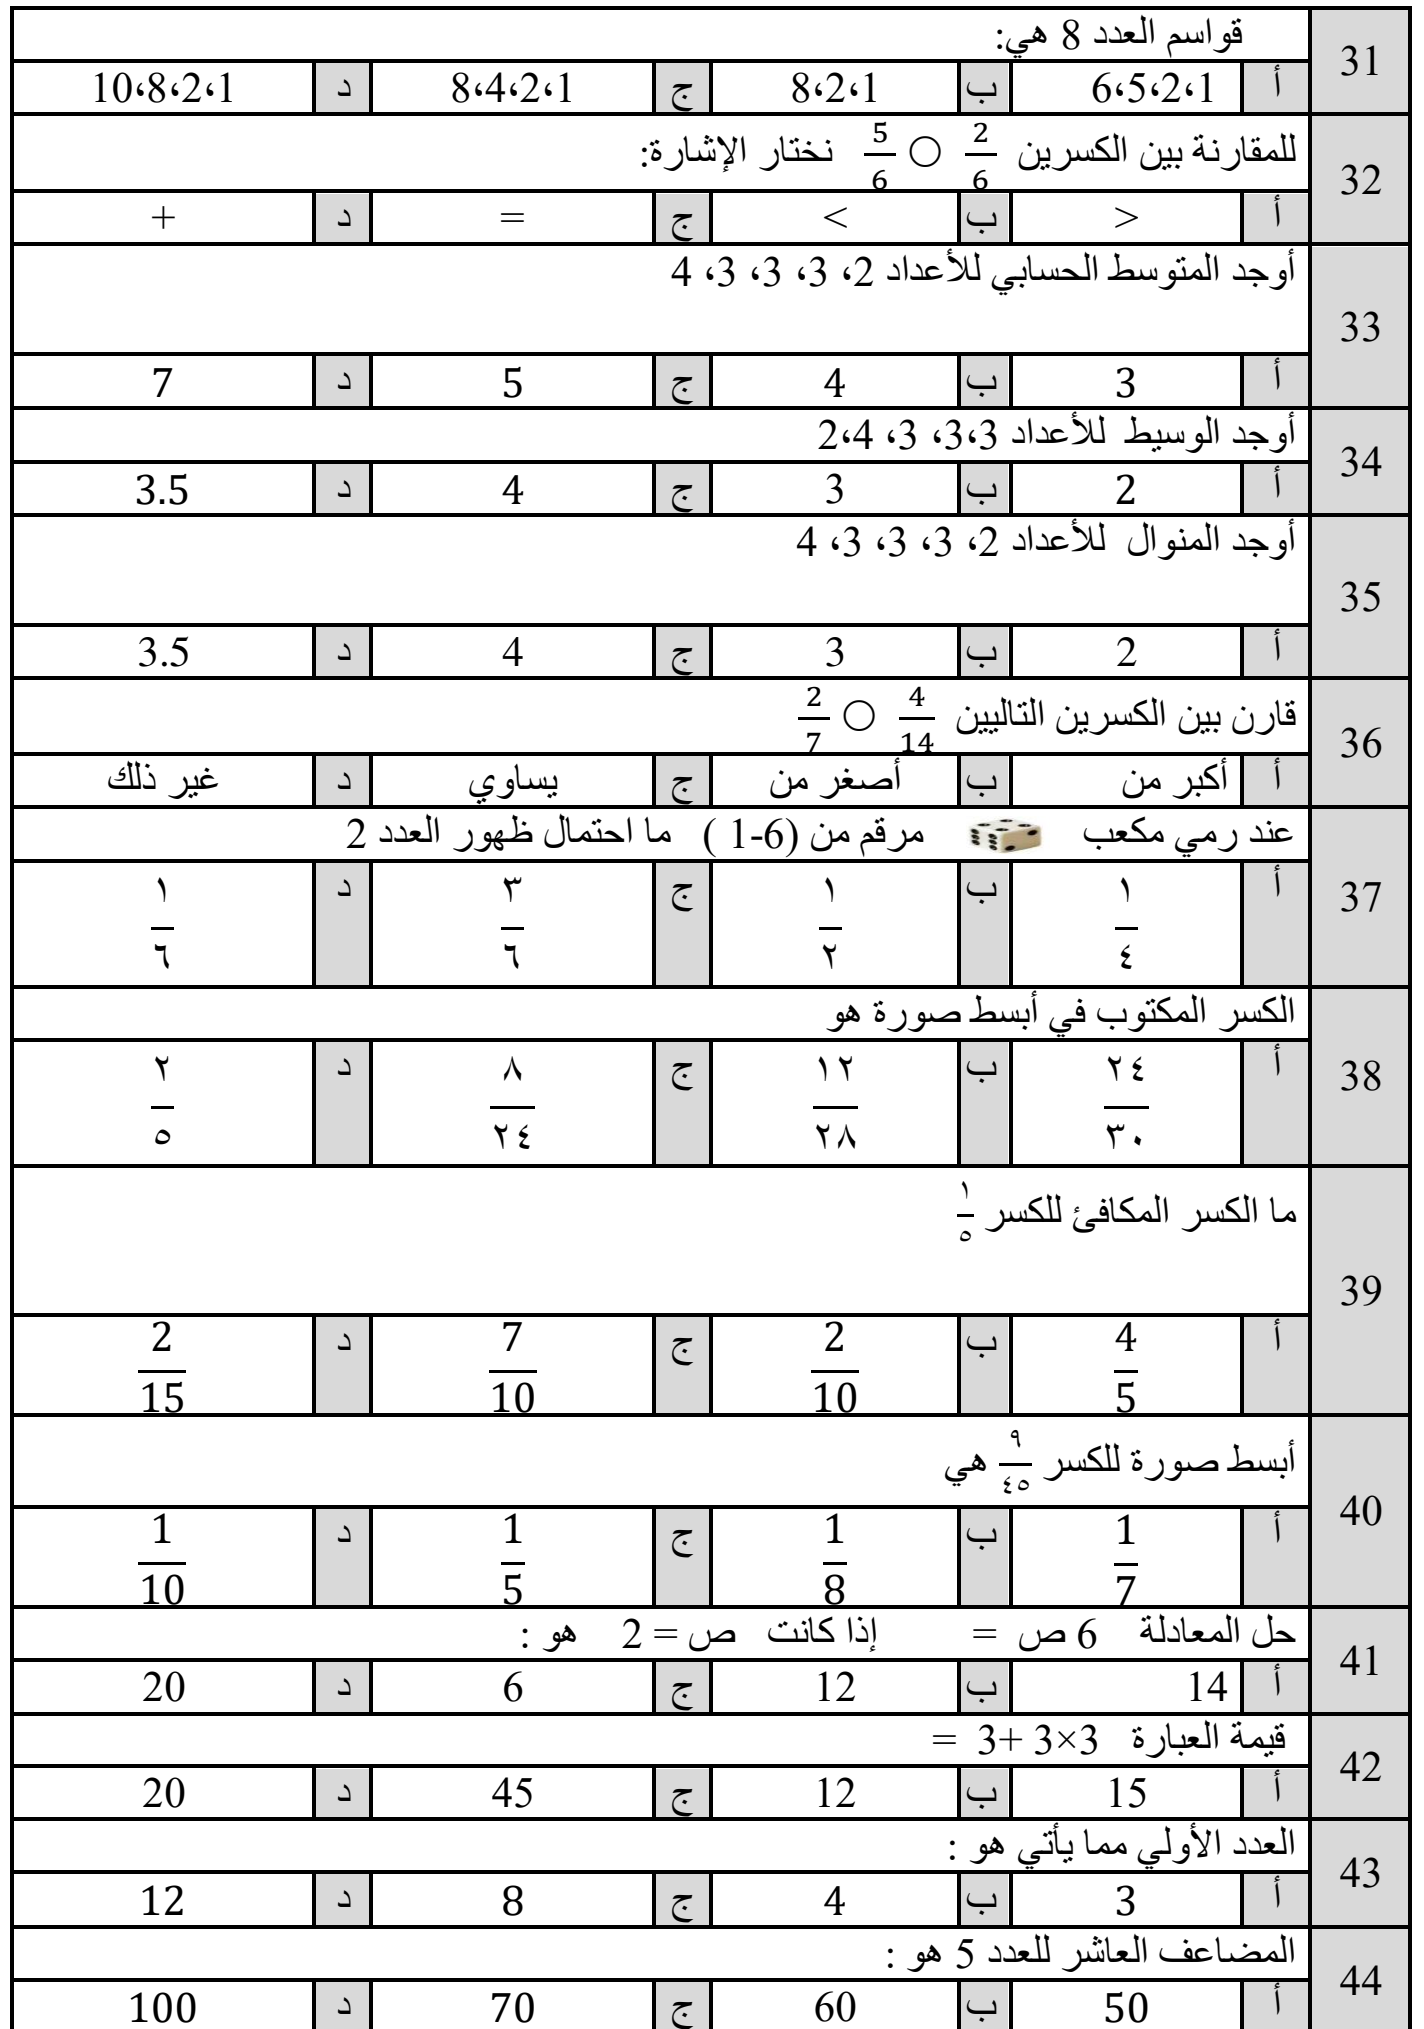 31 قواسم العدد 8 هي:
أ 6،5،2،1 ب 8،2،1 ج 8،4،2،1 د 10،8،2،1
32 للمقارنة بين الكسرين 2/6 ○ 5/6 نختار الإشارة:
أ > ب < ج = د +
33 أوجد المتوسط الحسابي للأعداد 2، 3، 3، 3، 4
أ 3 ب 4 ج 5 د 7
34 أوجد الوسيط للأعداد 3،3، 3، 2،4
أ 2 ب 3 ج 4 د 3.5
35 أوجد المنوال للأعداد 2، 3، 3، 3، 4
أ 2 ب 3 ج 4 د 3.5
36 قارن بين الكسرين التاليين 4/14 ○ 2/7
أ أكبر من ب أصغر من ج يساوي د غير ذلك
37 عند رمي مكعب مرقم من (6-1 ) ما احتمال ظهور العدد 2
أ ١/٤ ب ١/٢ ج ٣/٦ د ١/٦
38 الكسر المكتوب في أبسط صورة هو
أ ٢٤/٣٠ ب ١٢/٢٨ ج ٨/٢٤ د ٢/٥
39 ما الكسر المكافئ للكسر ١/٥
أ 4/5 ب 2/10 ج 7/10 د 2/15
40 أبسط صورة للكسر ٩/٤٥ هي
أ 1/7 ب 1/8 ج 1/5 د 1/10
41 حل المعادلة 6 ص = إذا كانت ص = 2 هو :
أ 14 ب 12 ج 6 د 20
42 قيمة العبارة 3×3 +3 =
أ 15 ب 12 ج 45 د 20
43 العدد الأولي مما يأتي هو :
أ 3 ب 4 ج 8 د 12
44 المضاعف العاشر للعدد 5 هو :
أ 50 ب 60 ج 70 د 100